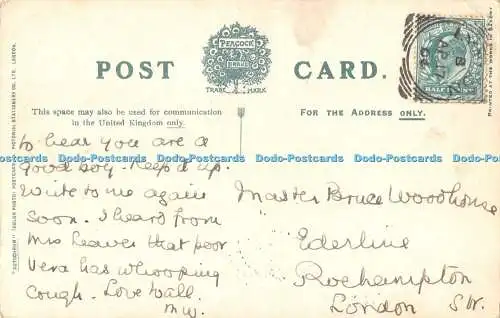 PEACOCK
BRAND
TRADE MARK
POST CARD.
This space may also be used for communication
in the United Kingdom only.
FOR THE ADDRESS ONLY.
to hear you are a
good boy. Keep it up.
Write to me again
soon. I heard from
Mrs Leaver that poor
Vera has whooping
cough. Love to all.
MW.
Master Bruce Woodhouse
Ederline
Roehampton
London S.W.
AP 17
Dodo-Postcards Dodo-Postcards Dodo-Postcards Dodo-Postcards Dodo-Postcards
Dodo-Postcards Dodo-Postcards Dodo-Postcards Dodo-Postcards Dodo-Postcards